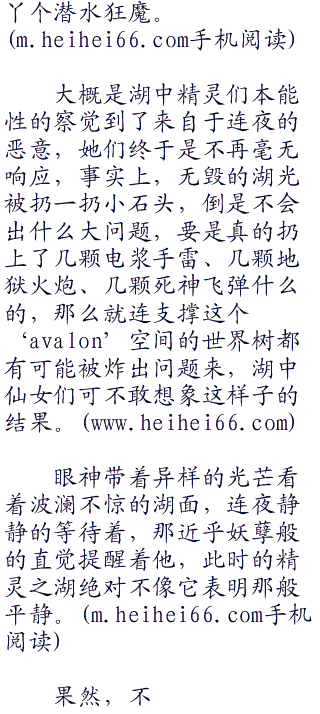 丫个潜水狂魔。
(m.heihei66.com手机阅读)
大概是湖中精灵们本能
性的察觉到了来自于连夜的
恶意，她们终于是不再毫无
响应，事实上，无毁的湖光
被扔一扔小石头，倒是不会
出什么大问题，要是真的扔
上了几颗电浆手雷、几颗地
狱火炮、几颗死神飞弹什么
的，那么就连支撑这个
‘avalon’空间的世界树都
有可能被炸出问题来，湖中
仙女们可不敢想象这样子的
结果。(www.heihei66.com)
眼神带着异样的光芒看
着波澜不惊的湖面，连夜静
静的等待着，那近乎妖孽般
的直觉提醒着他，此时的精
灵之湖绝对不像它表明那般
平静。(m.heihei66.com手机
阅读)
果然，不